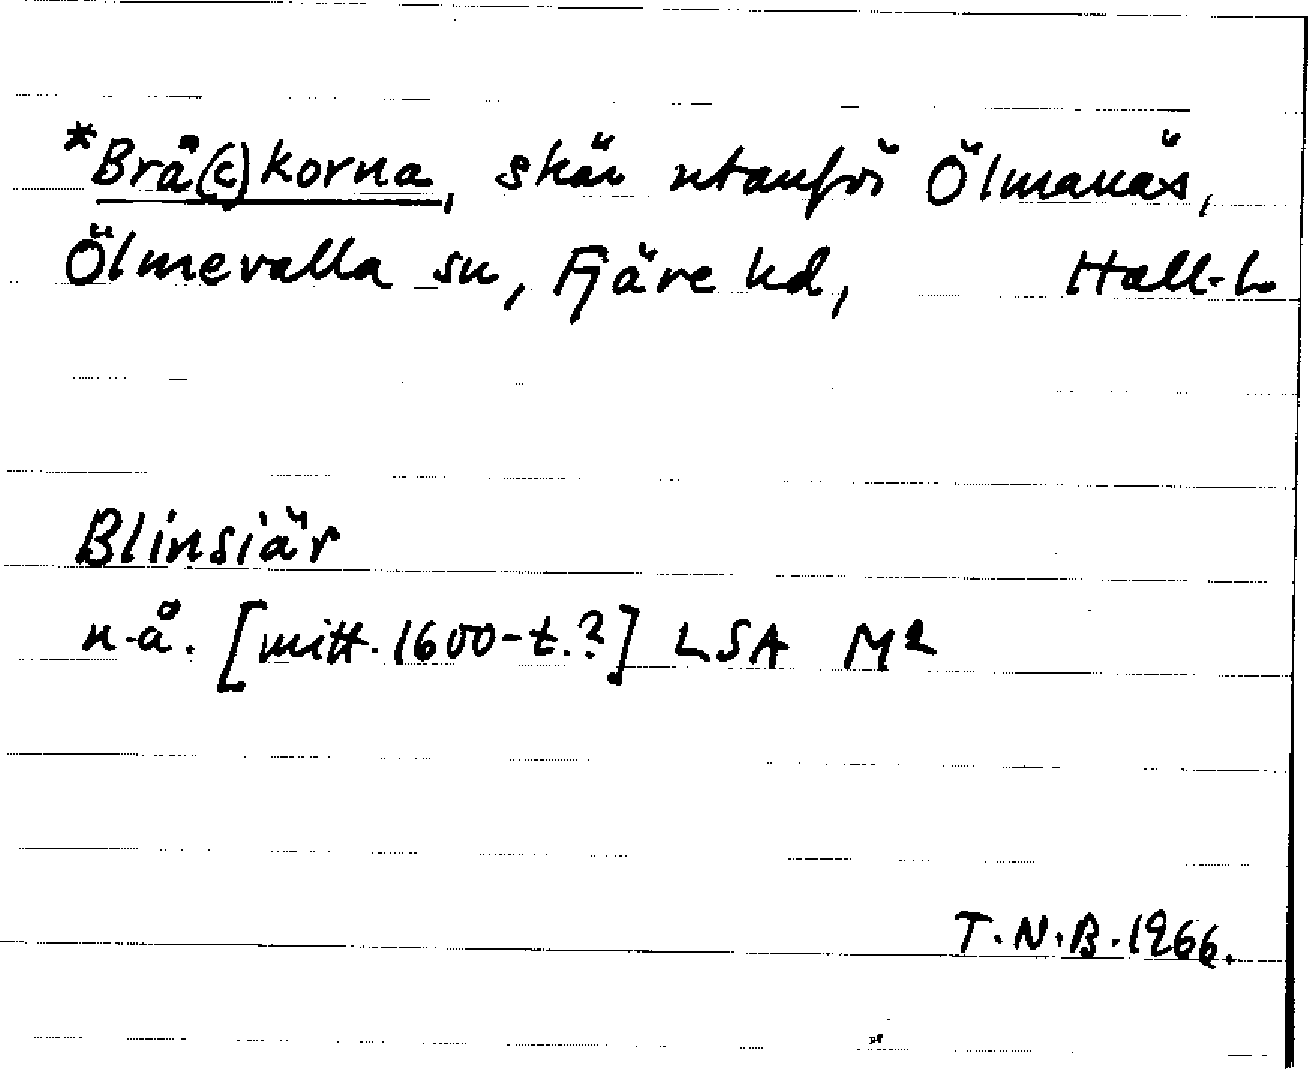 *Brå(c)korna, skär utanför Ölmanäs,
Ölmevalla sn, Fjäre hd, Hall. L
Blinsiär
n-å. [mitt. 1600-t.?] LSA M2
T.N.B. 1966.